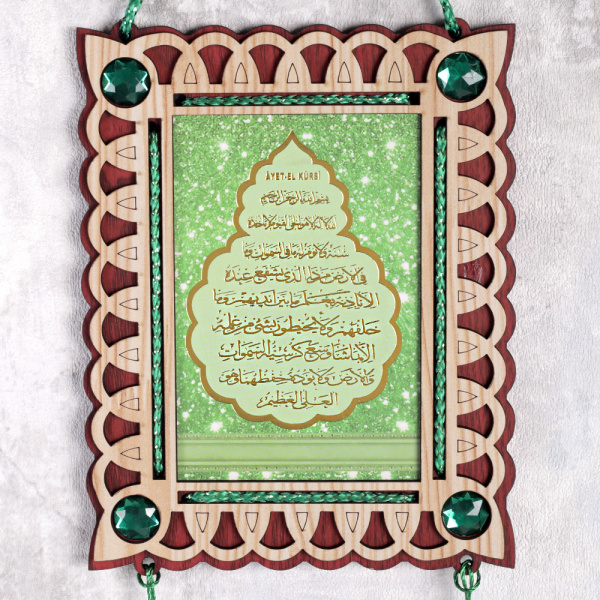 ÂYET-EL KÜRSİ
بسم الله الرحمن الرحيم
الله لا اله الا هو الحى القيوم لا تاخذه
سنة ولا نوم له ما فى السموات وما
فى الارض من ذا الذى يشفع عنده
الا باذنه يعلم ما بين ايديهم وما
خلفهم ولا يحيطون بشئ من علمه
الا بما شاء وسع كرسيه السموات
والارض ولا يؤده حفظهما وهو
العلى العظيم